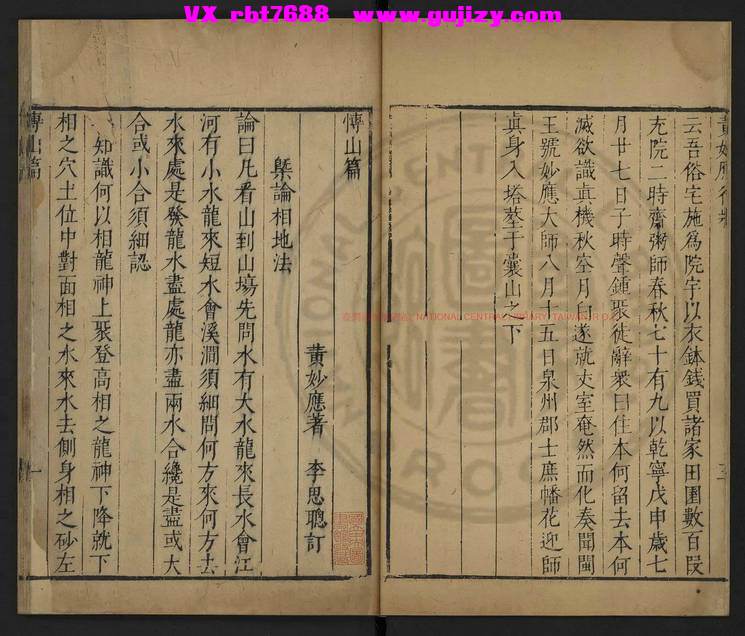 VX rbt7688 www.gujizy.com
黃妙應行狀
云吾俗宅施爲院宇以衣鉢錢買諸家田園數百段
充院二時齋粥師春秋七十有九以乾寧戊申歲七
月廿七日子時聲鍾聚徒辭衆曰住本何留去本何
滅欲識真機秋空月白遂就丈室奄然而化奏聞閩
王號妙應大師八月十五日泉州郡士庶幡花迎師
真身入塔塟于囊山之下
博山篇
槩論相地法
黃妙應著 李思聰訂
論曰凡看山到山塲先問水有大水龍來長水會江
河有小水龍來短水會溪澗須細問何方來何方去
水來處是發龍水盡處龍亦盡兩水合纔是盡或大
合或小合須細認
知識何以相龍神上聚登高相之龍神下降就下
相之穴土位中對面相之水來水去側身相之砂左
博山篇
一
NATIONAL CENTRAL LIBRARY, TAIWAN (R.O.C.)